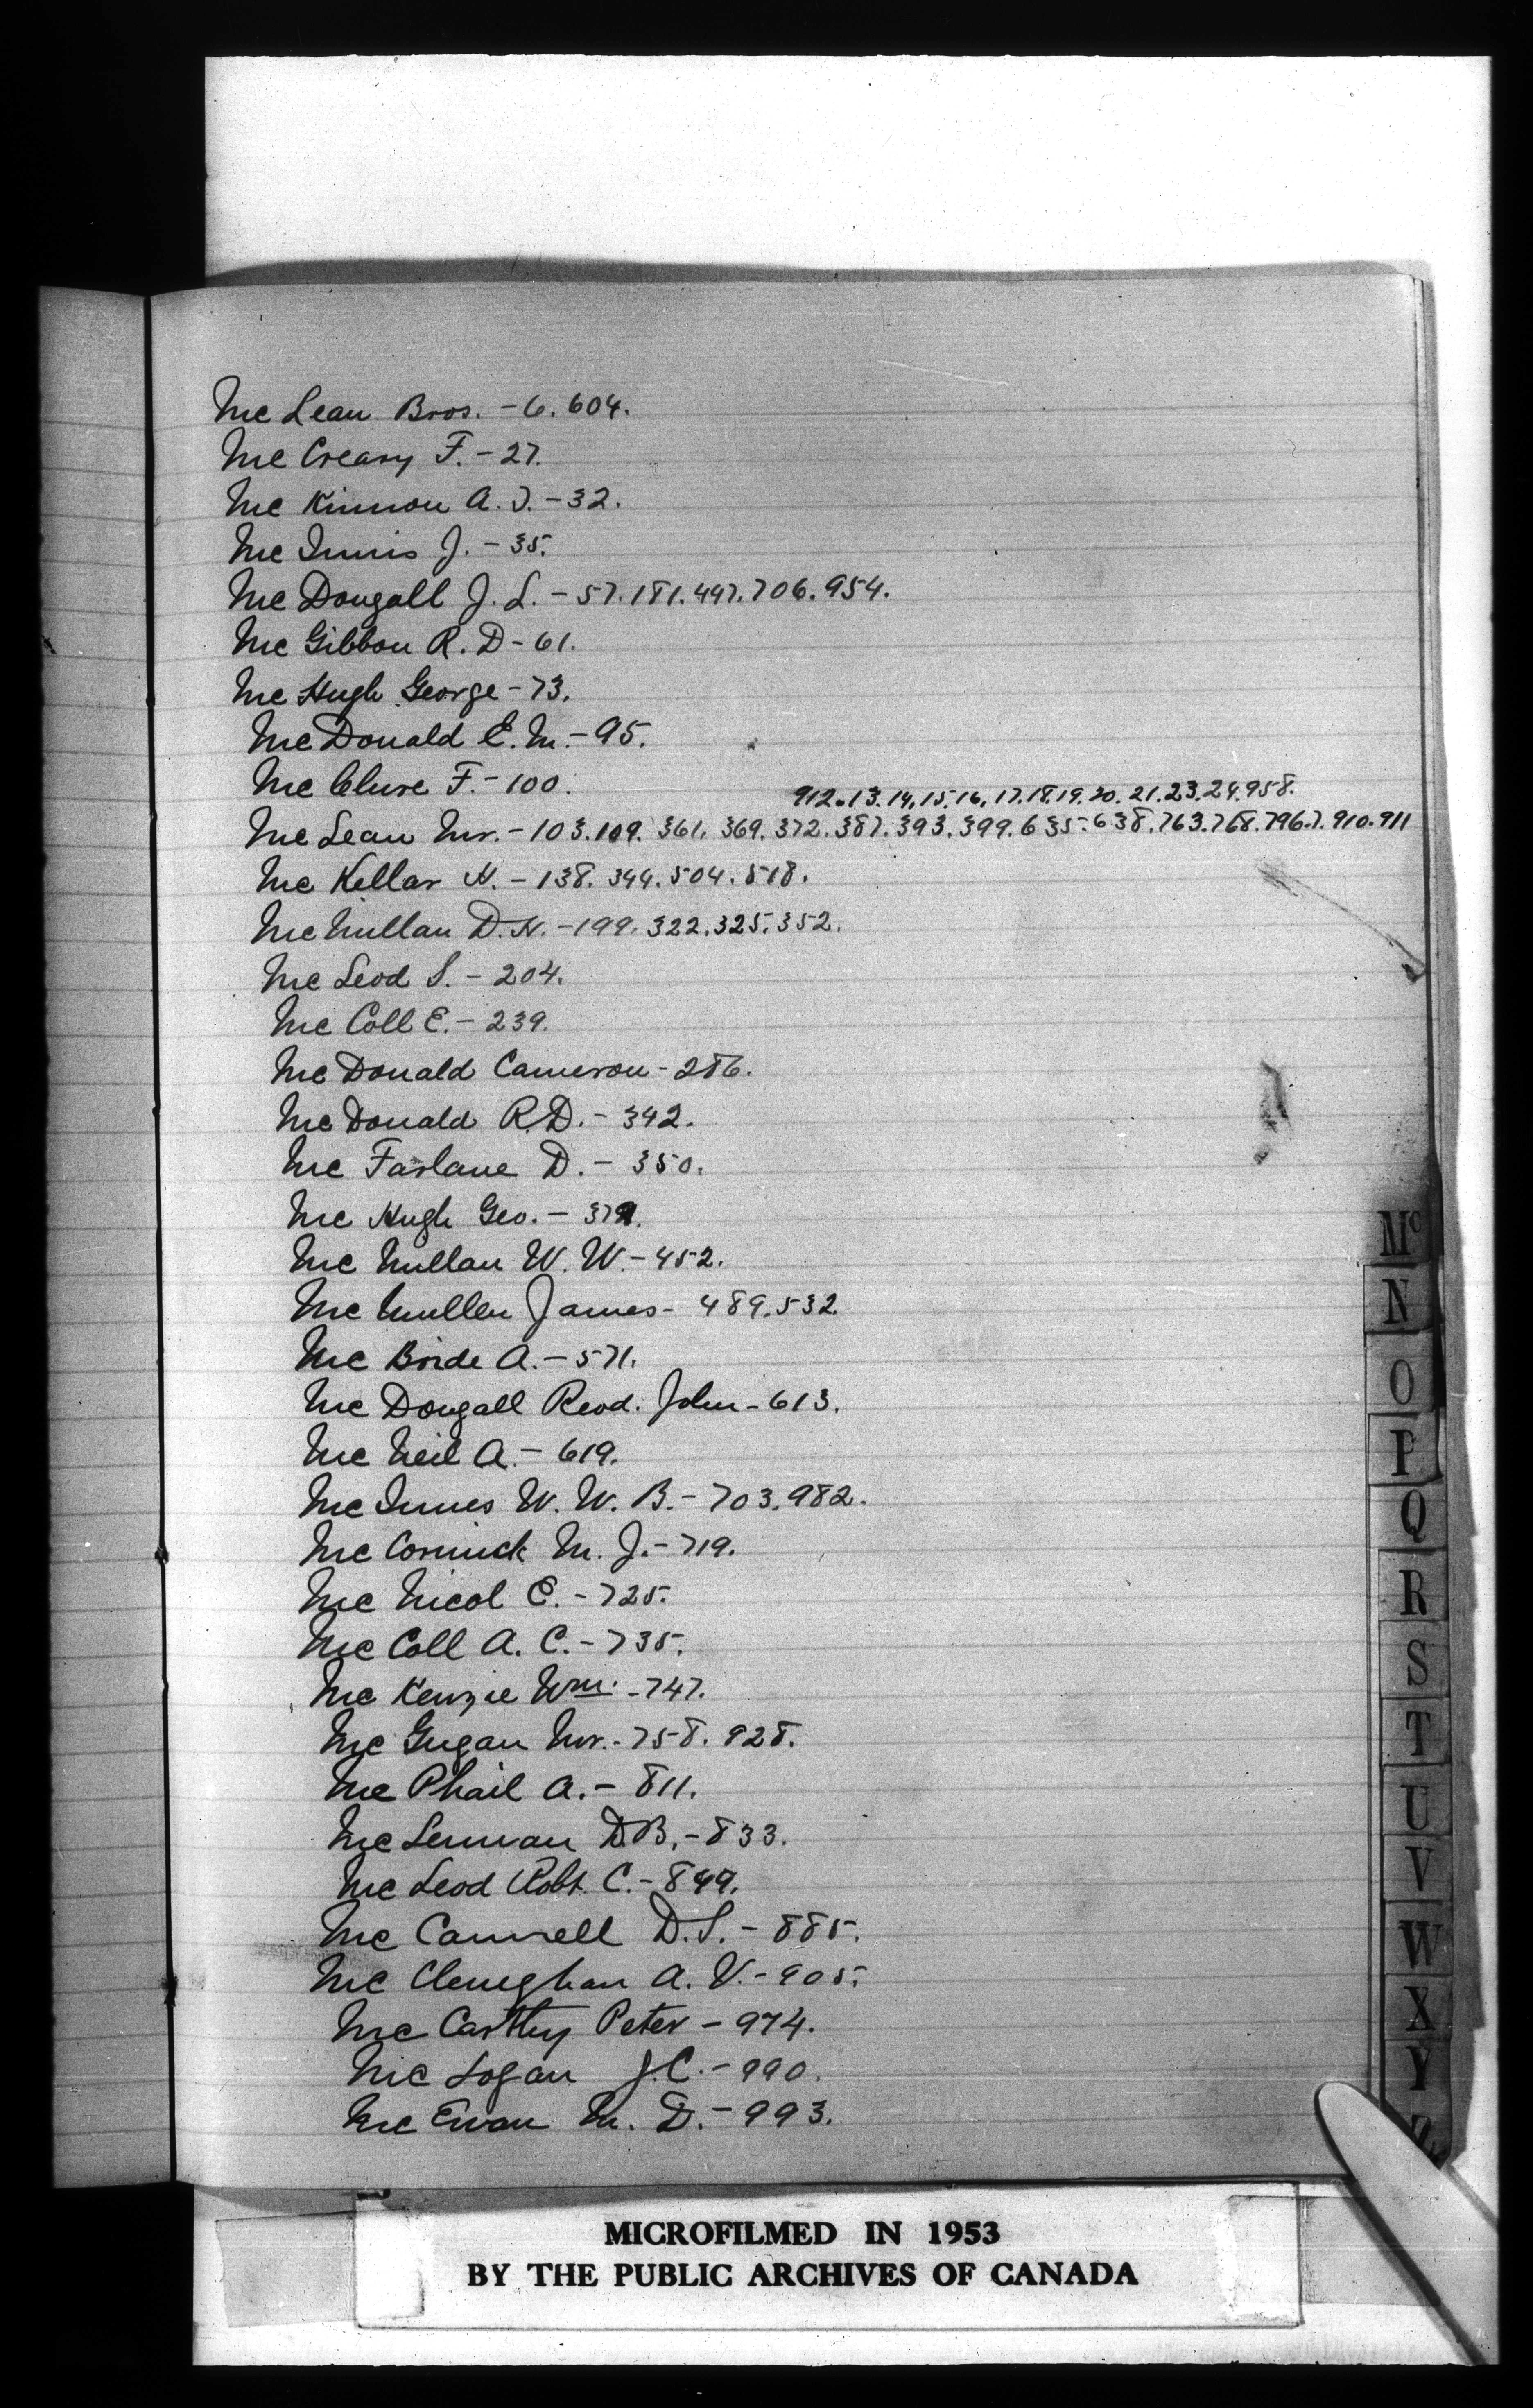 Mc Lean Bros. - 6. 604.
Mc Creary F. - 27.
Mc Kinnon A. J. - 32.
Mc Innis J. - 35.
Mc Dougall J. L. - 57. 181. 497. 706. 954.
Mc Gibbon R. D - 61.
Mc Hugh George - 73.
Mc Donald E. M. - 95.
Mc Clure F. - 100.
912. 13. 14. 15. 16. 17. 18. 19. 20. 21. 23. 24. 958.
Mc Lean Mr. - 103. 109. 361. 369. 372. 387. 393. 399. 635. 638. 763. 768. 796.7. 910. 911
Mc Kellar H. - 138. 344. 504. 518.
Mc Millan D. H. - 199. 322. 325. 352.
Mc Leod S. - 204.
Mc Coll E. - 239.
Mc Donald Cameron - 286.
Mc Donald R. D. - 342.
Mc Farlane D. - 350.
Mc Hugh Geo. -
Mc Millan W. W. - 452.
Mc Mullen James - 489. 532
Mc Bride A. - 571.
Mc Dougall Revd. John - 613.
Mc Neil A. - 619.
Mc Innes W. W. B. - 703. 982.
Mc Cormick M. J. - 719.
Mc Nicol E. - 725.
Mc Coll A. C. - 735.
Mc Kenzie Wm. - 747.
Mc Gugan Mr. - 758. 928.
Mc Phail A. - 811.
Mc Lennan D. B. - 833.
Mc Leod Robt. C. - 849.
Mc Cannell D. S. - 885.
Mc Clenaghan A. V. - 905.
Mc Carthy Peter - 974.
Mc Logan J. C. - 990.
Mc Ewan M. D. - 993.
Mc
N
O
P
Q
R
S
T
U
V
W
X
Y
Z
MICROFILMED IN 1953
BY THE PUBLIC ARCHIVES OF CANADA